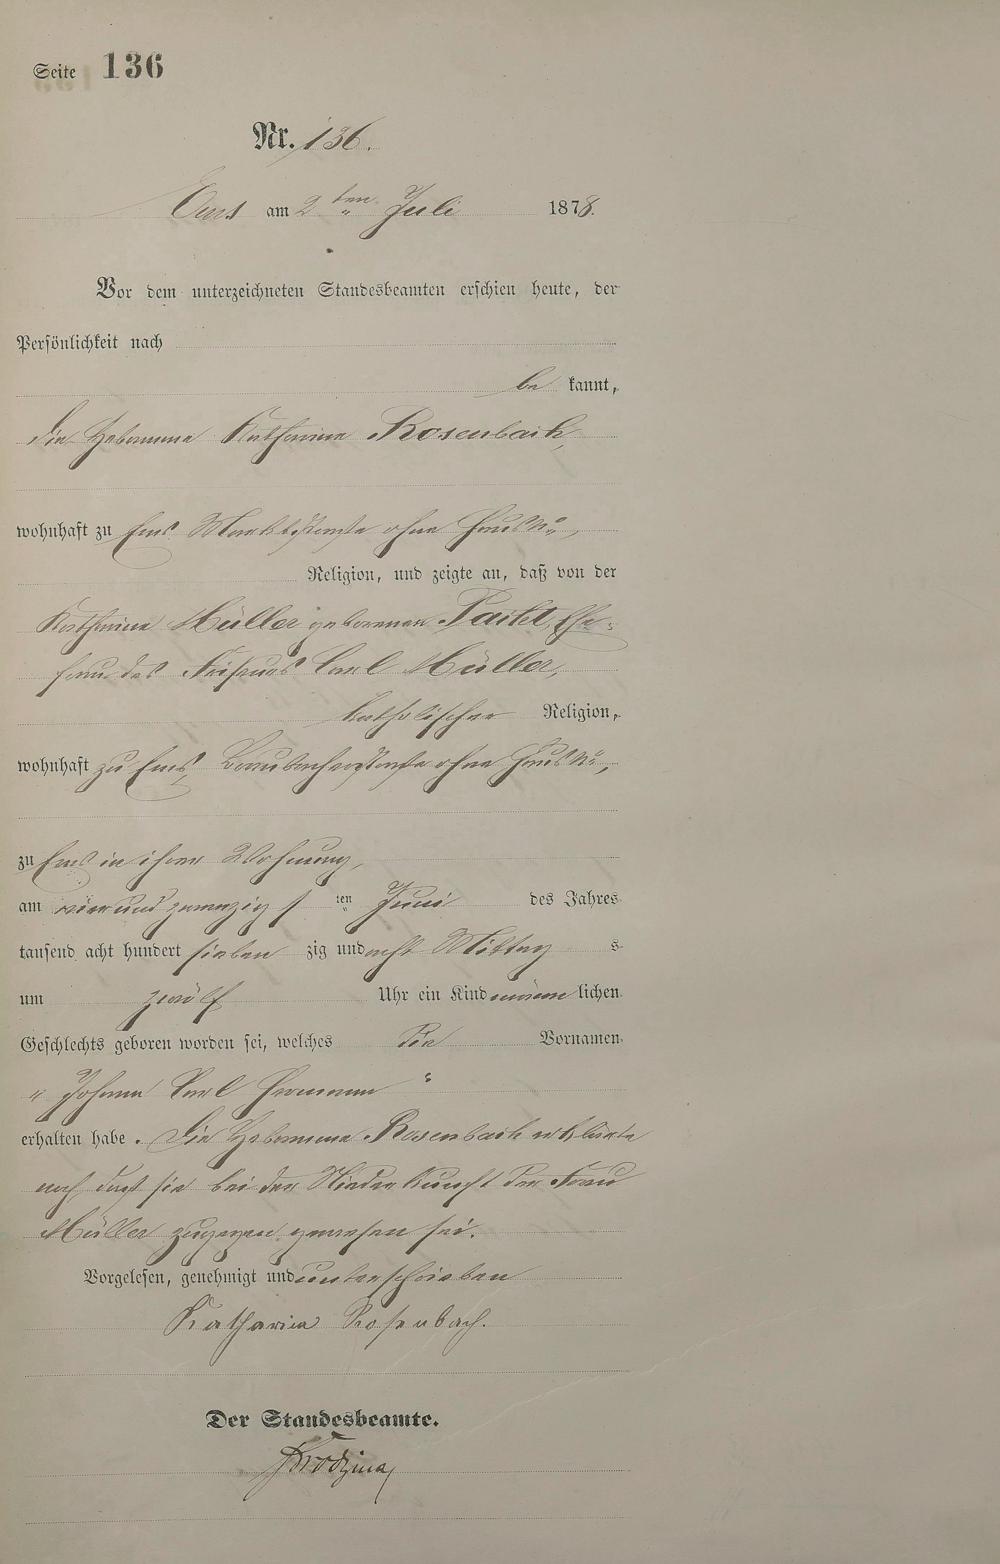 Seite 136
Nr. 136.
Ems am 2ten Juli 1878.
Vor dem unterzeichneten Standesbeamten erschien heute, der
Persönlichkeit nach
be kannt,
die Hebamme Katharina Rosenbach,
wohnhaft zu Ems ohne Haus No,
Religion, und zeigte an, daß von der
Katharina Müller geborenen Ehe-
frau des Friseurs Carl Müller,
katholischer Religion,
wohnhaft zu Ems, ohne Haus No,
zu Ems in ihrer Wohnung,
am vierundzwanzigsten Juni des Jahres
tausend acht hundert sieben zig und acht Mittag s
um zwölf Uhr ein Kind männlichen
Geschlechts geboren worden sei, welches die Vornamen
" Johann Carl Hermann "
erhalten habe. Die Hebamme Rosenbach erklärte
noch, daß sie bei der Niederkunft der Frau
Müller zugegen gewesen sei.
Vorgelesen, genehmigt und unterschrieben
Katharina Rosenbach.
Der Standesbeamte.